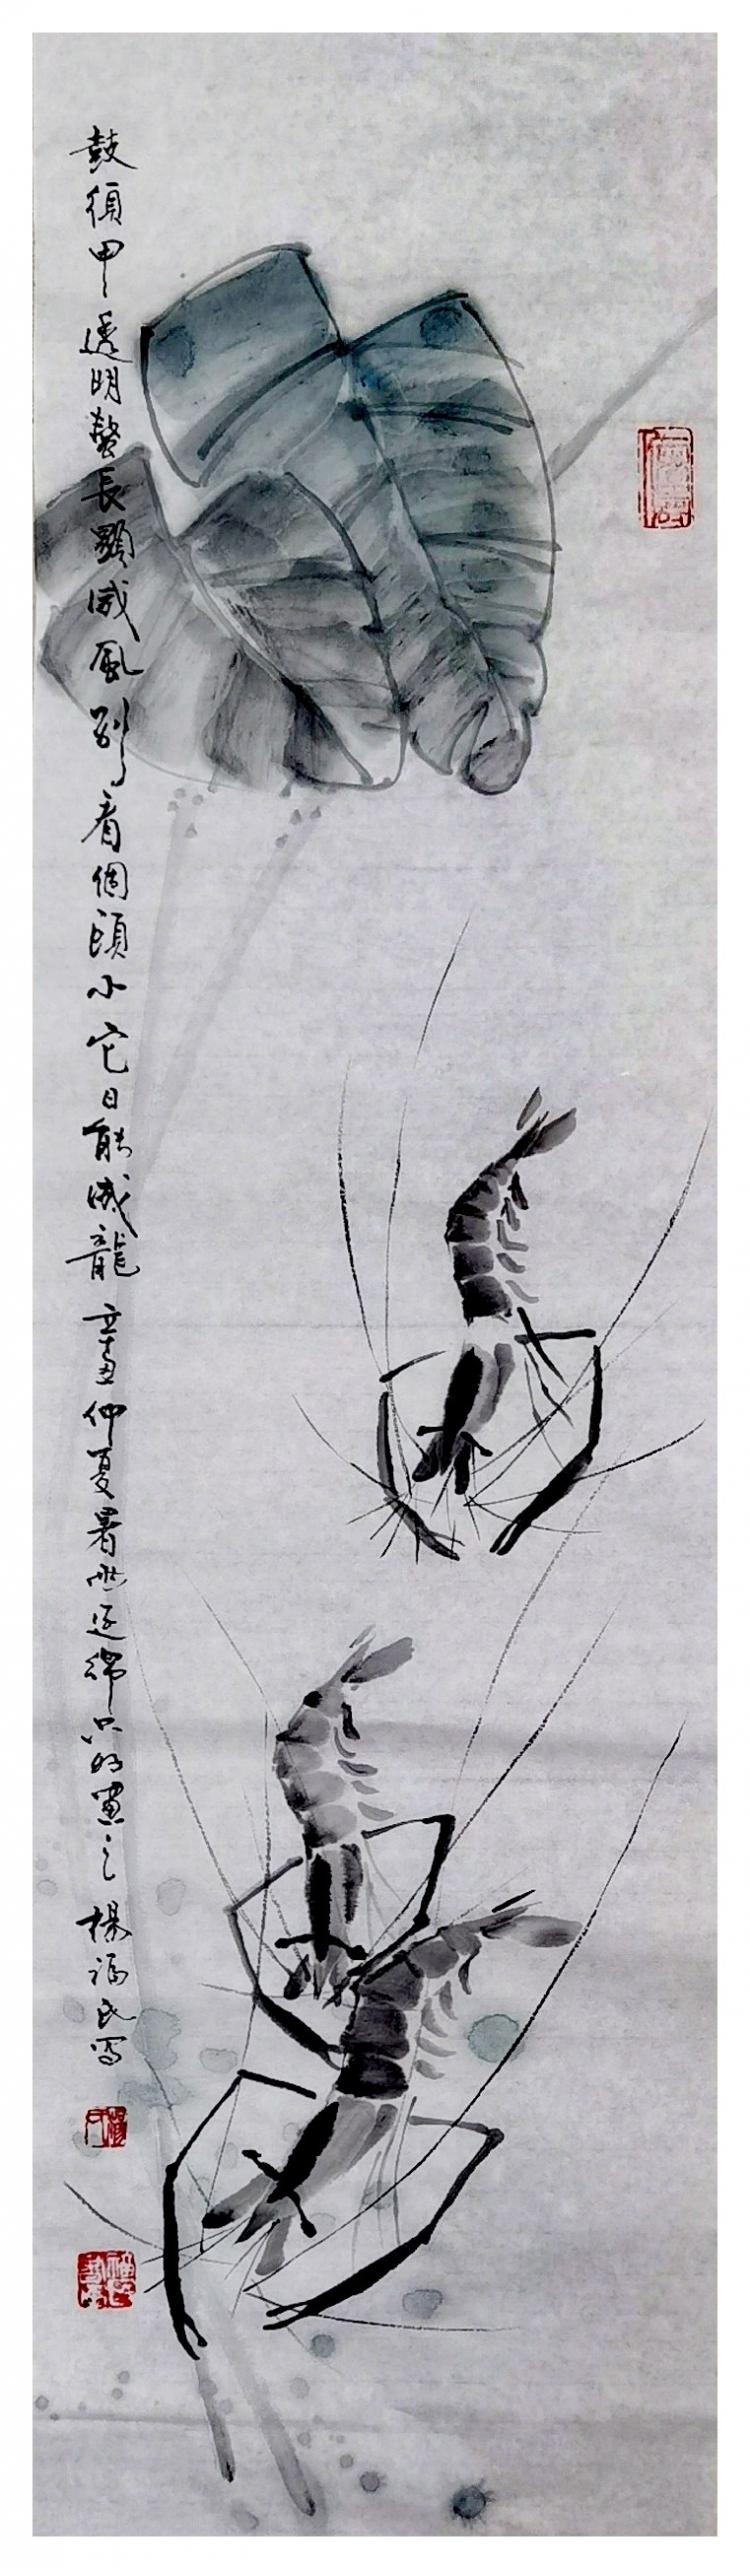 鼓須甲透明螯長顯威風別看個頭小它日能成龍辛丑仲夏暑熱連綿只好畫之楊福民寫